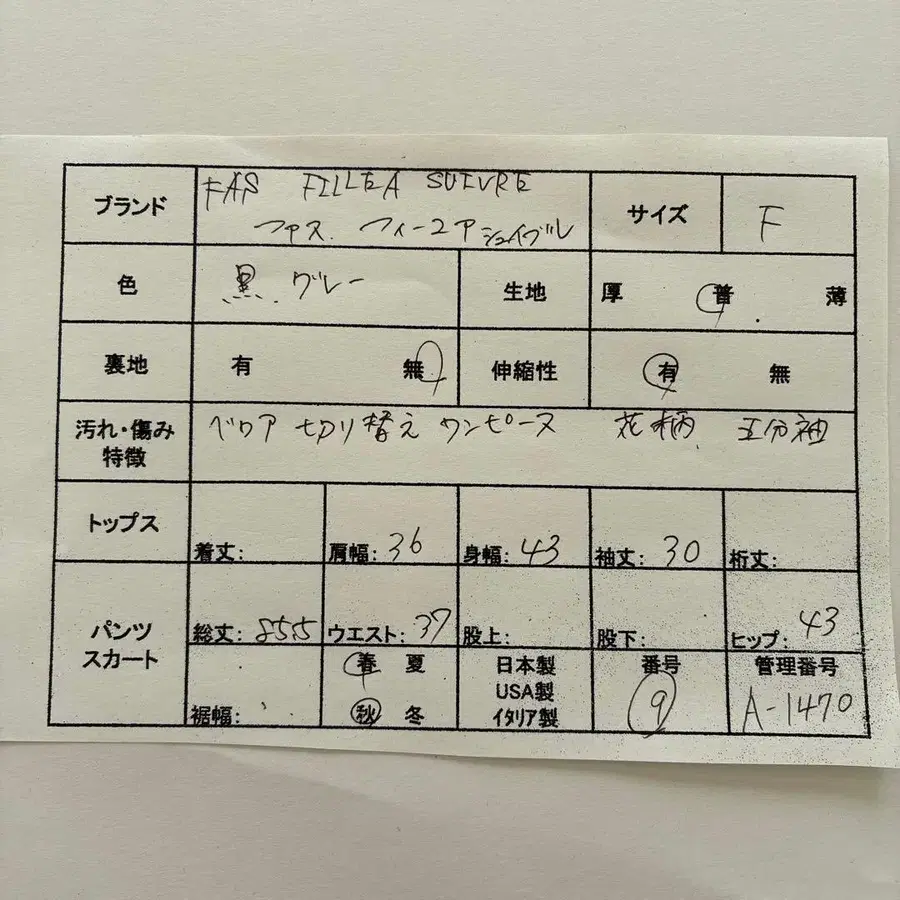 ブランド FAS FILLEA SUIVRE サイズ F
ファス. フィーユア シュイブル
色 黒. グレー 生地 厚 普 薄
裏地 有 無 伸縮性 有 無
汚れ・傷み ベロア 切り替え ワンピース 花柄 五分袖
特徴
トップス
着丈: 肩幅: 36 身幅: 43 袖丈: 30 裄丈:
パンツ
スカート
総丈: 85.5 ウエスト: 37 股上: 股下: ヒップ: 43
春 夏 日本製 番号 管理番号
USA製
裾幅: 秋 冬 イタリア製 9 A-1470